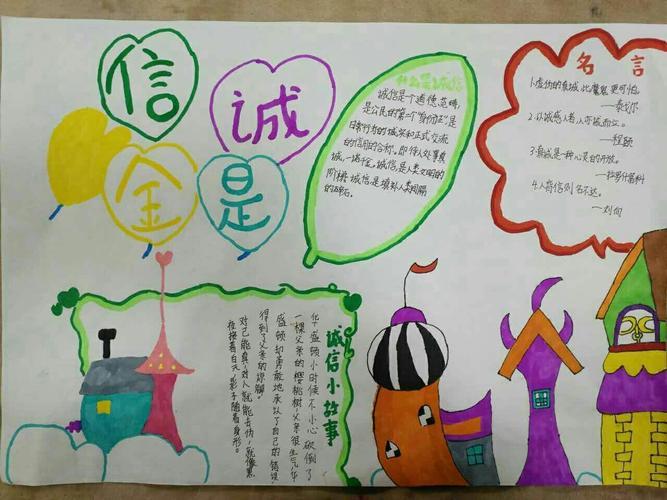 信诚
金是
什么是诚信
诚信是个道德范畴,
是公民的第二个"身份证"是
日常行为的诚实和正式交流
的信用的合称。即待人处事真
诚、一诺。诚信是人类文明的
阶梯,诚信是填补人类间隙
名言
1.虚伪的真诚,比魔鬼更可怕
—泰戈尔
2.以诚感人者,人亦诚而应。
—程颐
3.真诚是一种心灵的开放。
—拉罗什富科
4.人背信则名不达。
—刘向
诚信小故事
华盛顿小时候不小心砍倒了
一棵父亲的樱桃树,父亲很生气,华
盛顿却勇敢地承认了自己的错误,
得到了父亲的谅解。
对己能真,对人就能去伪,就像黑
夜接着白天,影子随着身形。